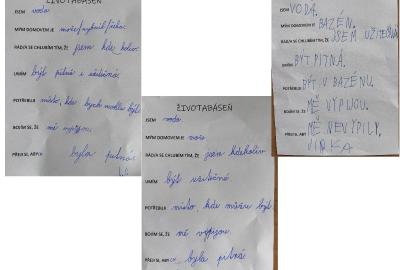 ŽIVOTABÁSEŇ
JSEM voda
MÝM DOMOVEM JE moře/rybník/řeka.
RÁD/A SE CHLUBÍM TÍM, ŽE jsem kde koliv.
UMÍM být pitná i užitečná.
POTŘEBUJI místo, kde bych mohla být.
BOJÍM SE, ŽE mě vypijou.
PŘEJI SI, ABYCH byla pitná.
ŽIVOTABÁSEŇ
JSEM voda.
MÝM DOMOVEM JE moře
RÁD/A SE CHLUBÍM TÍM, ŽE jsem kdekoliv
UMÍM být užitečná
POTŘEBUJI místo, kde můžu být
BOJÍM SE, ŽE mě vypijou.
PŘEJI SI, ABYCH byla pitná
JSEM VODA.
MÝM DOMOVEM JE BAZÉN.
RÁD/A SE CHLUBÍM TÍM, ŽE JSEM UŽITEČNÁ
UMÍM BÝT PITNÁ.
POTŘEBUJI BÝT V BAZÉNU.
BOJÍM SE, ŽE MĚ VYPIJOU.
PŘEJI SI, ABY MĚ NEVYPILY.
JIRKA